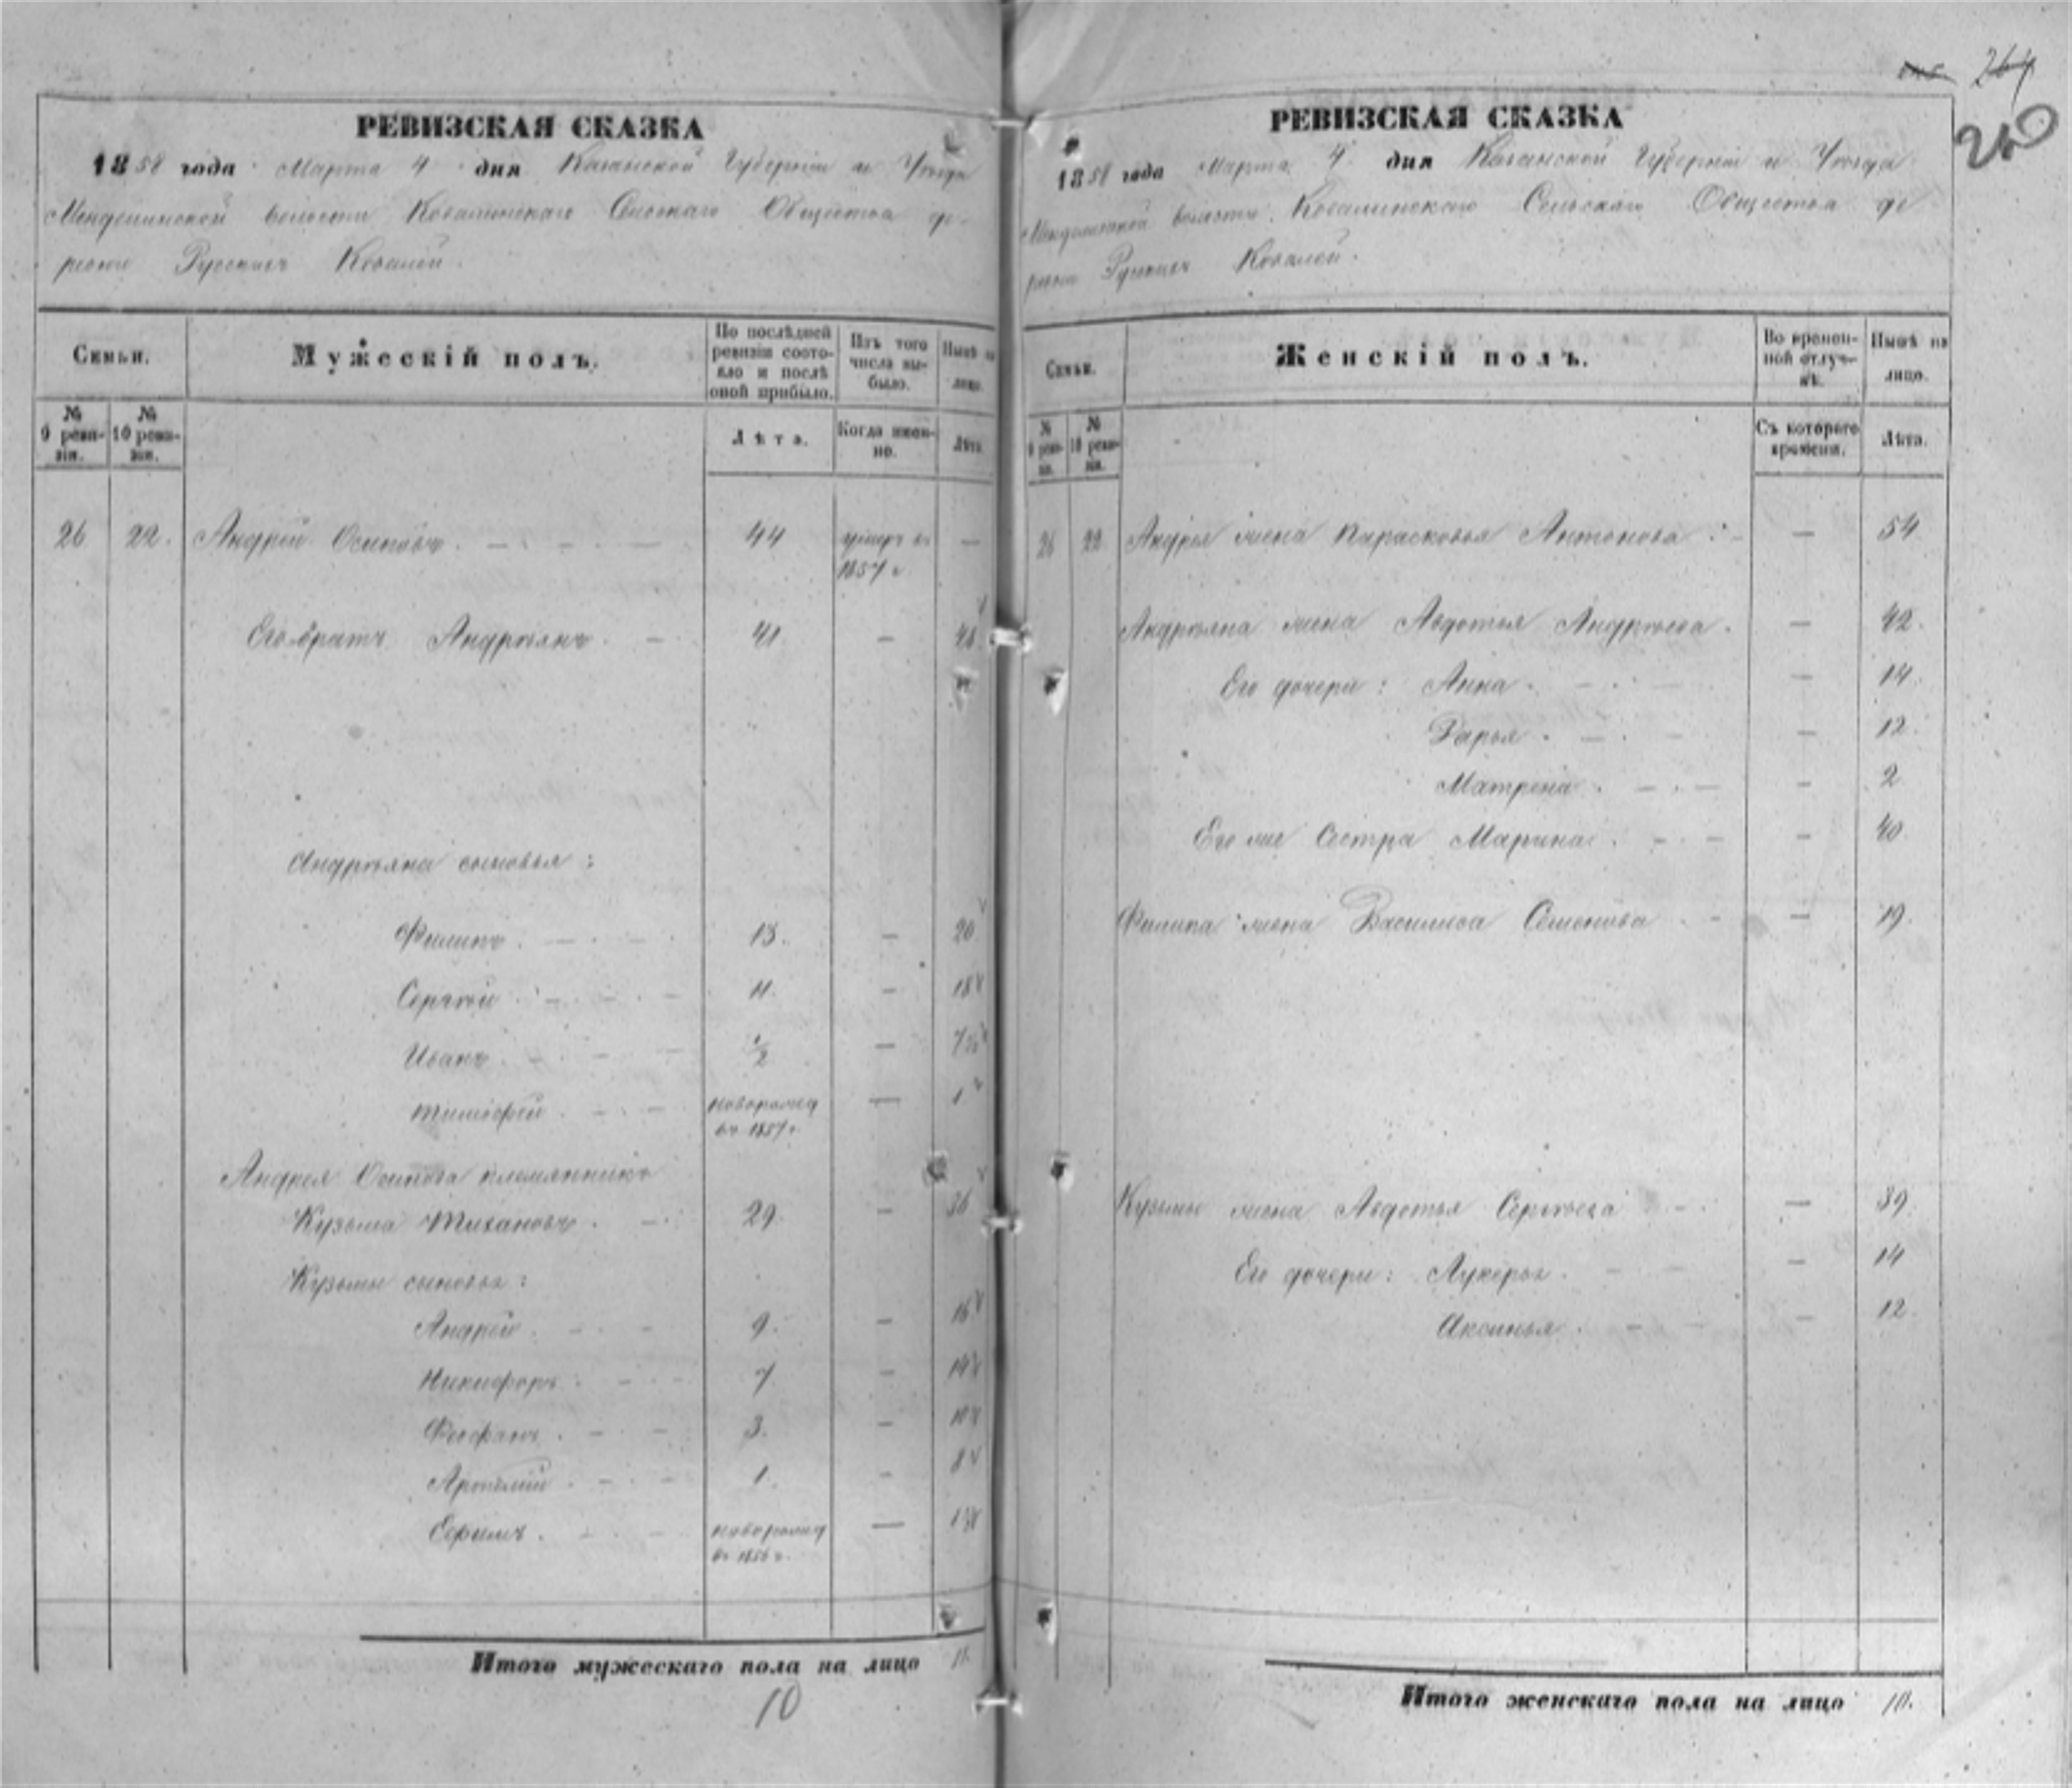 264
260
РЕВИЗСКАЯ СКАЗКА
1858 года Марта 4 дня Казанской Губернiи и Уѣзда
волости Ковалинскаго Сельскаго Общества де-
ревни Русскихъ Ковалей.
Семьи.
Мужескiй полъ.
По послѣдней ревизiи состояло и послѣ оной прибыло.
Изъ того числа выбыло.
Нынѣ на лицо.
№ 9 ревизiи.
№ 10 ревизiи.
Лѣта.
Когда именно.
Лѣта.
26 22. Андрей Осиповъ. 44 умеръ въ 1857 г. —
Его братъ Андреянъ. 41 — 48
Андреяна сыновья:
Филипъ. 13. — 20
Сергѣй 11. — 18
Иванъ. 1/2 — 7 1/2
Тимофей. новорожд въ 1857 г. — 1
Андрея Осипова племянникъ
Кузьма 29. — 36
Кузьмы сыновья:
Андрей. 9. — 16
Никифоръ 7 — 14
Феофанъ. 3. — 10
1. — 8
Ефимъ. новорожд въ 1856 г. —
Итого мужескаго пола на лицо 11.
10
РЕВИЗСКАЯ СКАЗКА
1858 года Марта 4 дня Казанской Губернiи и Уѣзда
волости Ковалинскаго Сельскаго Общества де
ревни Русскихъ Ковалей.
Семьи.
Женскiй полъ.
Во временной отлучкѣ.
Нынѣ на лицо.
№ 9 ревизiи.
№ 10 ревизiи.
Съ котораго времени.
Лѣта.
26 22 Андрея жена Парасковья Антонова: — 54
Андреяна жена Авдотья Андреева. — 42.
Его дочери: Анна. — 14.
Дарья. — 12.
Матрена. — 2
Его же Сестра Марина. — 40
Филипа жена Василиса Семенова — 19.
Кузьмы жена Авдотья Сергѣева — 39.
Его дочери: Лукерья. — 14
Аксинья. — 12.
Итого женскаго пола на лицо 10.